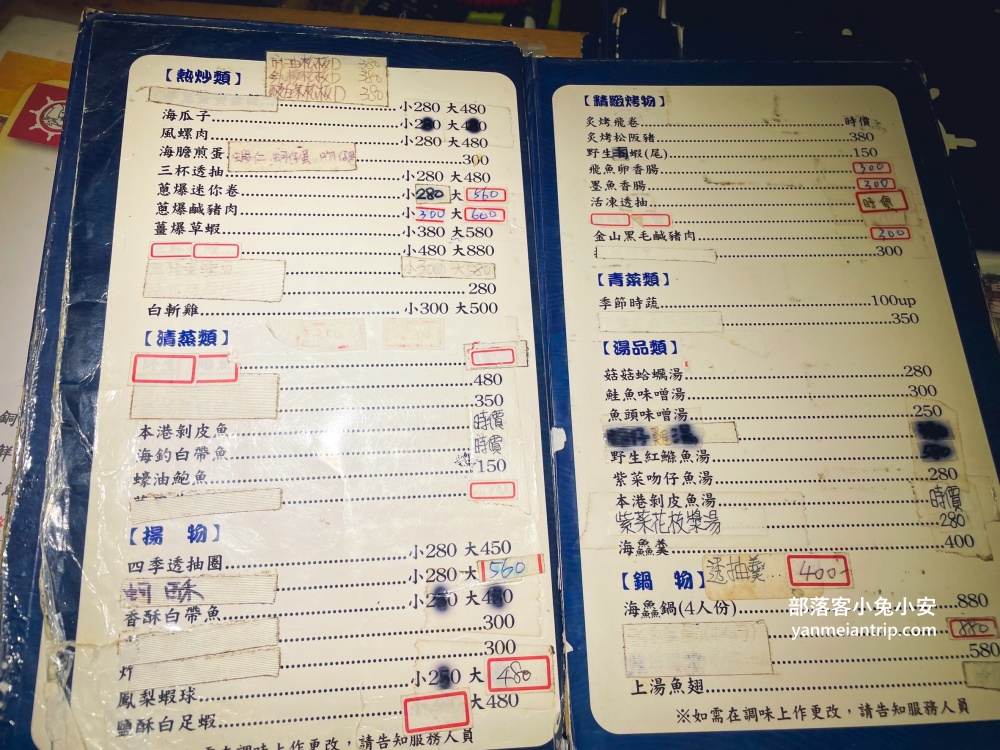 【熱炒類】
380
380
380
小280 大480
海瓜子
風螺肉 小280 大480
海膽煎蛋 300
三杯透抽 小280 大480
蔥爆迷你卷 小280 大560
蔥爆鹹豬肉 小300 大600
薑爆草蝦 小380 大580
小480 大880
280
白斬雞 小300 大500
【清蒸類】
480
350
本港剝皮魚 時價
海釣白帶魚 時價
蠔油鮑魚 150
【揚 物】
四季透抽圈 小280 大450
蚵酥 小280 大560
香酥白帶魚
300
炸 300
鳳梨蝦球 480
鹽酥白足蝦 大480
需在調味上作更改，請告知服務人員
【精緻烤物】
炙烤飛卷 時價
炙烤松阪豬 380
野生 蝦(尾) 150
飛魚卵香腸 300
墨魚香腸 300
活凍透抽 時價
金山黑毛鹹豬肉 200
300
【青菜類】
季節時蔬 100up
350
【湯品類】
菇菇蛤蠣湯 280
鮭魚味噌湯 300
魚頭味噌湯 250
野生紅鰷魚湯
紫菜吻仔魚湯 280
本港剝皮魚湯 時價
紫菜花枝漿湯 280
海鱻羹 400
透抽羹 400
【鍋 物】
海鱻鍋(4人份) 880
880
580
上湯魚翅
※如需在調味上作更改，請告知服務人員
部落客小兔小安
yanmeiantrip.com